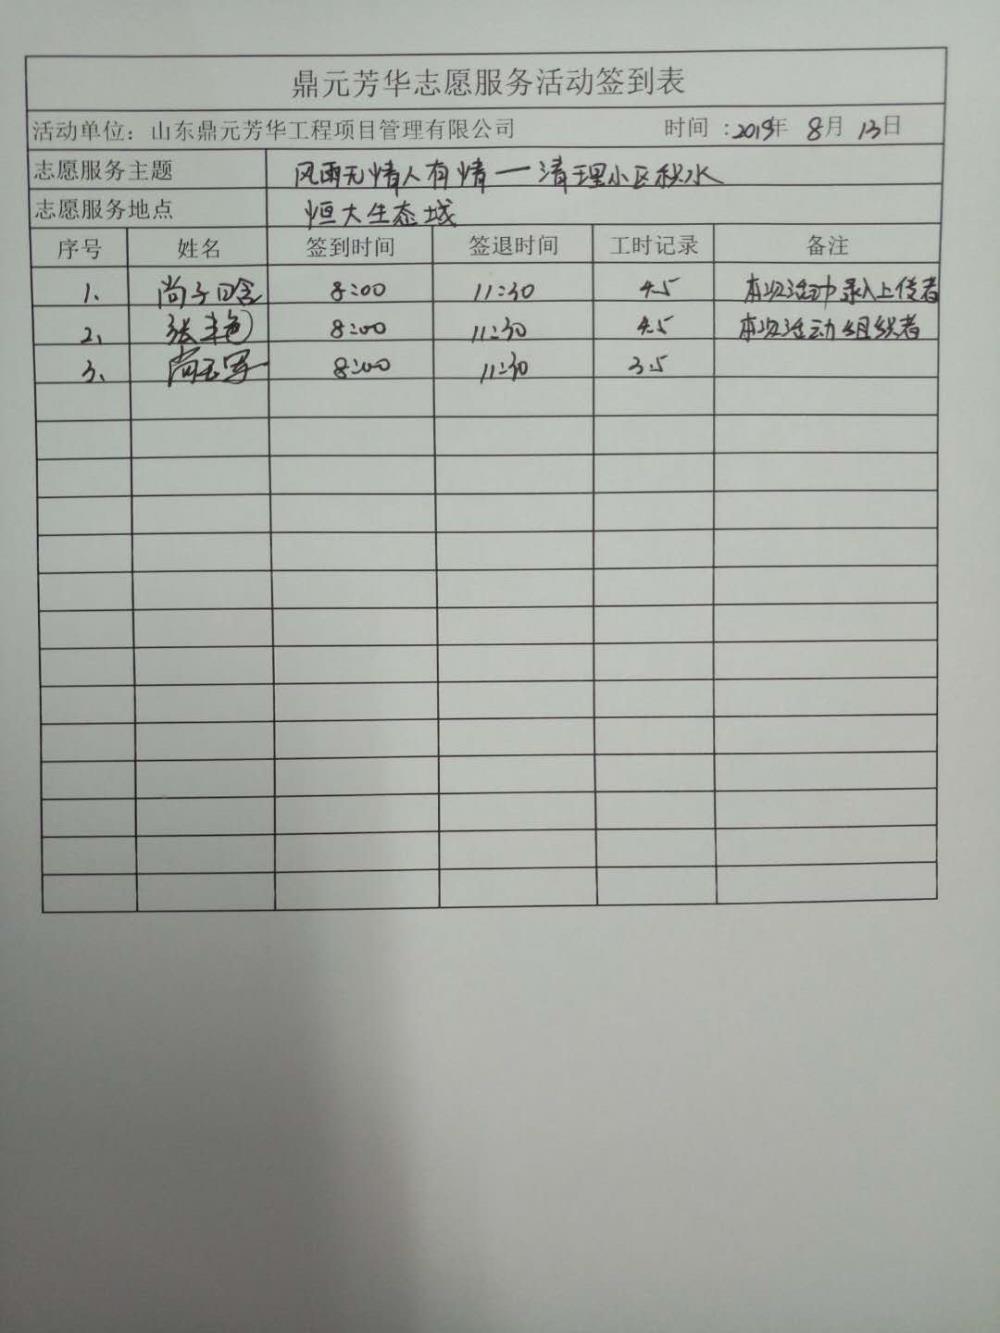 鼎元芳华志愿服务活动签到表
活动单位：山东鼎元芳华工程项目管理有限公司 时间：2019年 8月 13日
志愿服务主题 风雨无情人有情一清理小区积水
志愿服务地点 恒大生态城
序号 姓名 签到时间 签退时间 工时记录 备注
1、 尚子晗 8:00 11:30 4.5 本次活动录入上传者
2、 张丰艳 8:00 11:30 4.5 本次活动组织者
3、 尚玉军 8:00 11:30 3.5